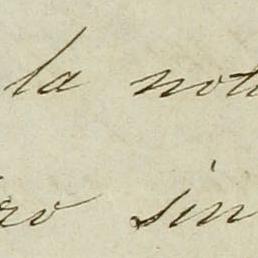 la not
ro sin